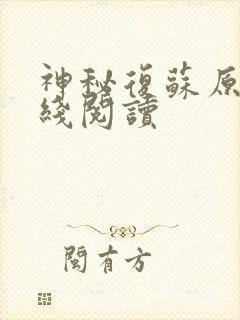 神秘復蘇原
綫閱讀
閩有方